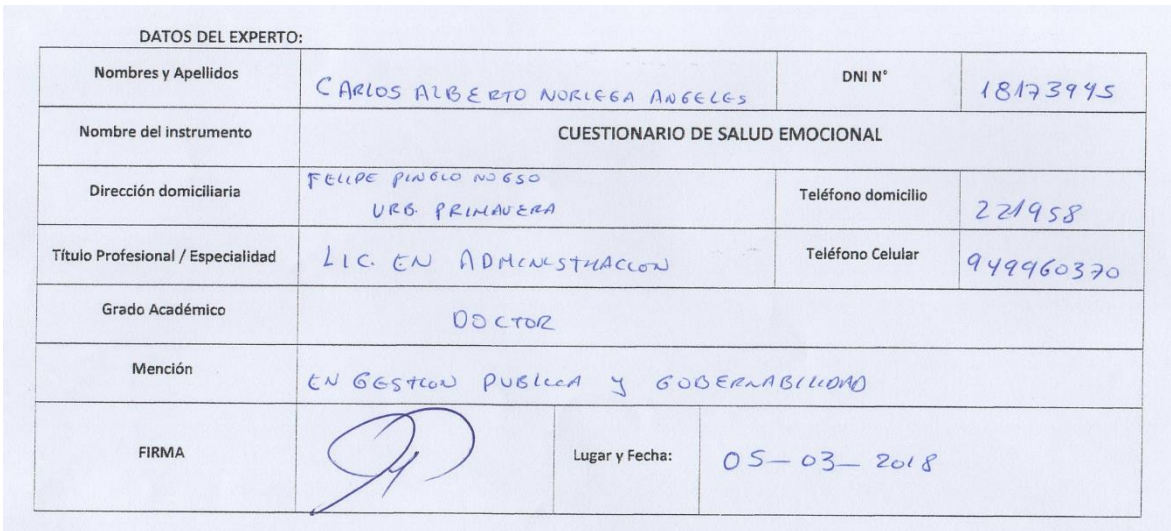 DATOS DEL EXPERTO:
Nombres y Apellidos CARLOS ALBERTO NORIEGA ANGELES DNI N° 18173945
Nombre del instrumento CUESTIONARIO DE SALUD EMOCIONAL
Dirección domiciliaria FELIPE PINGLO Teléfono domicilio 221958
URB. PRIMAVERA
Título Profesional / Especialidad LIC. EN ADMINISTRACION Teléfono Celular 949960370
Grado Académico DOCTOR
Mención EN GESTION PUBLICA y GOBERNABILIDAD
FIRMA Lugar y Fecha: 05-03-2018